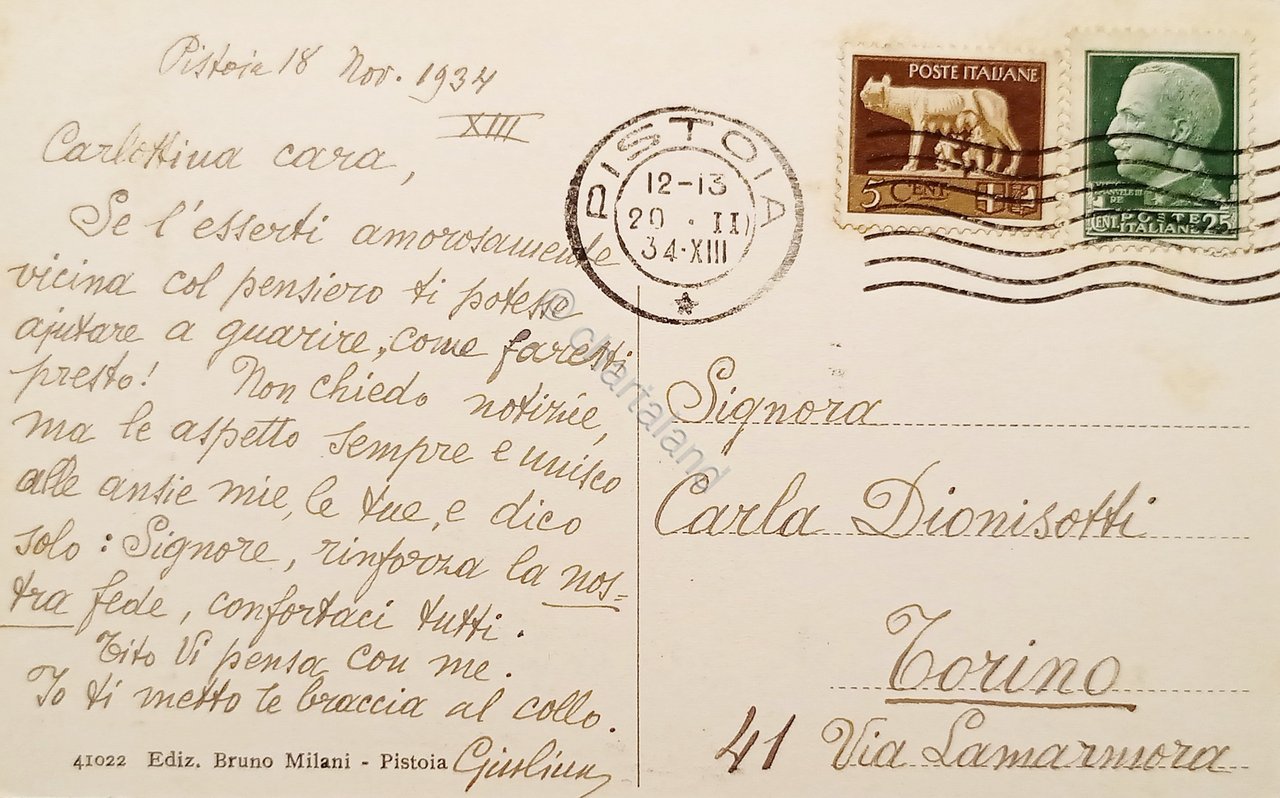 Pistoia 18 Nov. 1934
XIII
Carlottina cara,
Se l'esserti amorosamente
vicina col pensiero ti potesse
ajutare a guarire, come faresti
presto! Non chiedo notizie,
ma le aspetto sempre e unisco
alle ansie mie, le tue, e dico
solo: Signore, rinforza la nos=
tra fede, confortaci tutti.
Tito Vi pensa con me.
Io ti metto le braccia al collo.
Giulina
41022 Ediz. Bruno Milani - Pistoia
PISTOIA
12-13
20 · II
34·XIII
POSTE ITALIANE
5 CENT
RE
CENT POSTE 25
ITALIANE
Signora
Carla Dionisotti
Torino
41 Via Lamarmora
© chartaland